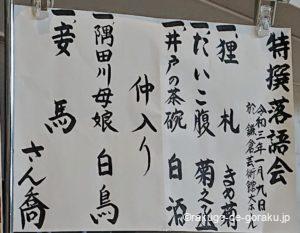 特撰落語会
令和三年一月九日
於 鎌倉芸術館大ホール
一、狸札 きめ菊
一、だいこ腹 菊之丞
一、井戸の茶碗 白酒
仲入り
一、隅田川母娘 白鳥
一、妾馬 さん喬
©rakugo-de-goraku.jp